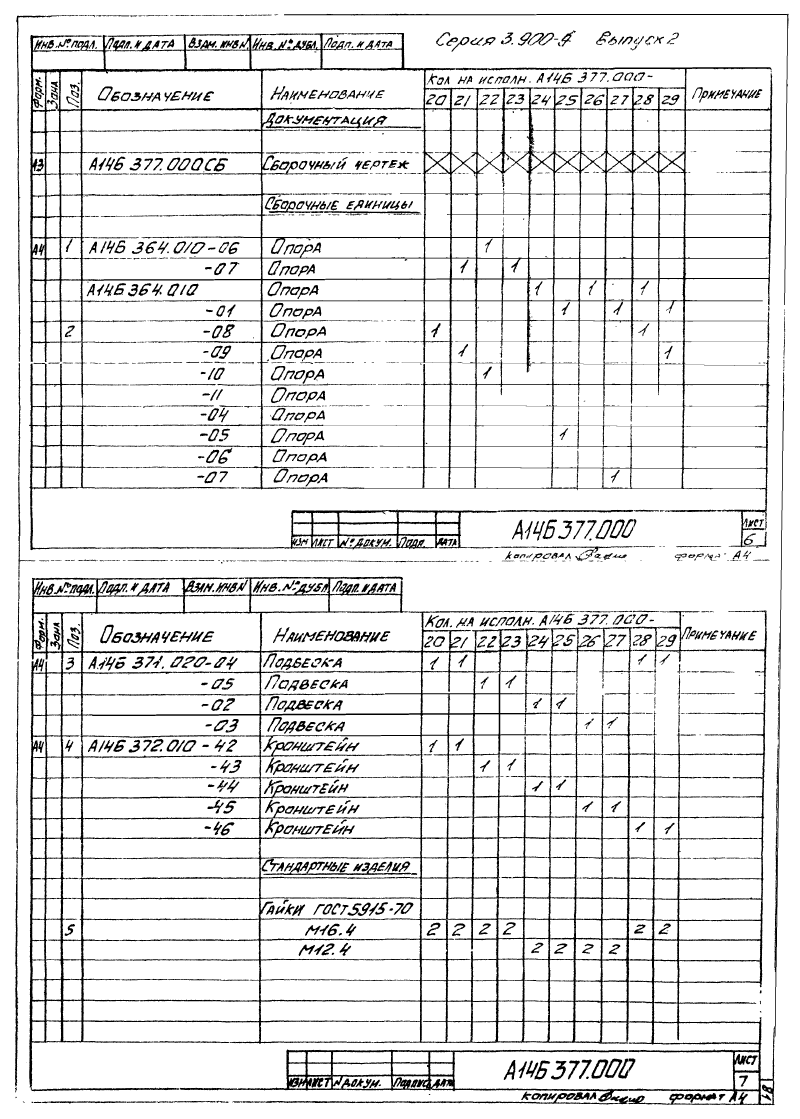 Серия 3.900-9 Выпуск 2
Инв. № подл. Подп. и дата Взам. инв № Инв. № дубл. Подп. и дата
Форм. Зона Поз. Обозначение Наименование Кол на исполн. А14Б 377.000- Примечание
20 21 22 23 24 25 26 27 28 29
Документация
А3 А14Б 377.000СБ Сборочный чертеж
Сборочные единицы
А4 1 А14Б 364.010-06 Опора 1
-07 Опора 1 1
А14Б 364.010 Опора 1 1 1
-01 Опора 1 1 1
2 -08 Опора 1 1
-09 Опора 1 1
-10 Опора 1
-11 Опора
-04 Опора
-05 Опора 1
-06 Опора
-07 Опора 1
Изм Лист № докум. Подп. Дата
А14Б 377.000
Лист
6
Копировал формат А4
Инв. № подл. Подп. и дата Взам. инв № Инв. № дубл Подп. и дата
Форм. Зона Поз. Обозначение Наименование Кол. на исполн. А14Б 377.000- Примечание
20 21 22 23 24 25 26 27 28 29
А4 3 А14Б 371.020-04 Подвеска 1 1 1 1
-05 Подвеска 1 1
-02 Подвеска 1 1
-03 Подвеска 1 1
А4 4 А14Б 372.010-42 Кронштейн 1 1
-43 Кронштейн 1 1
-44 Кронштейн 1 1
-45 Кронштейн 1 1
-46 Кронштейн 1 1
Стандартные изделия
Гайки ГОСТ 5915-70
5 М16.4 2 2 2 2 2 2
М12.4 2 2 2 2
Изм Лист № докум. Подпись Дата
А14Б 377.000
Лист
7
Копировал формат А4
18